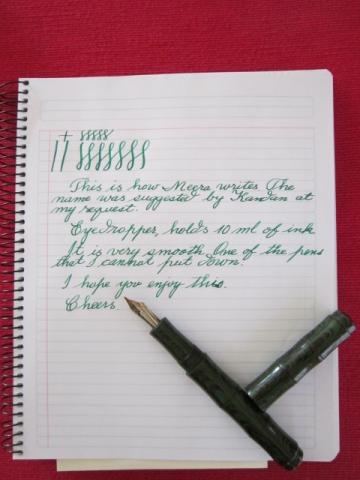 This is how Meera writes. The
name was suggested by Kandan at
my request.
Eyedropper, holds 10 ml of ink
It is very smooth. One of the pens
that I cannot put down.
I hope you enjoy this.
Cheers.